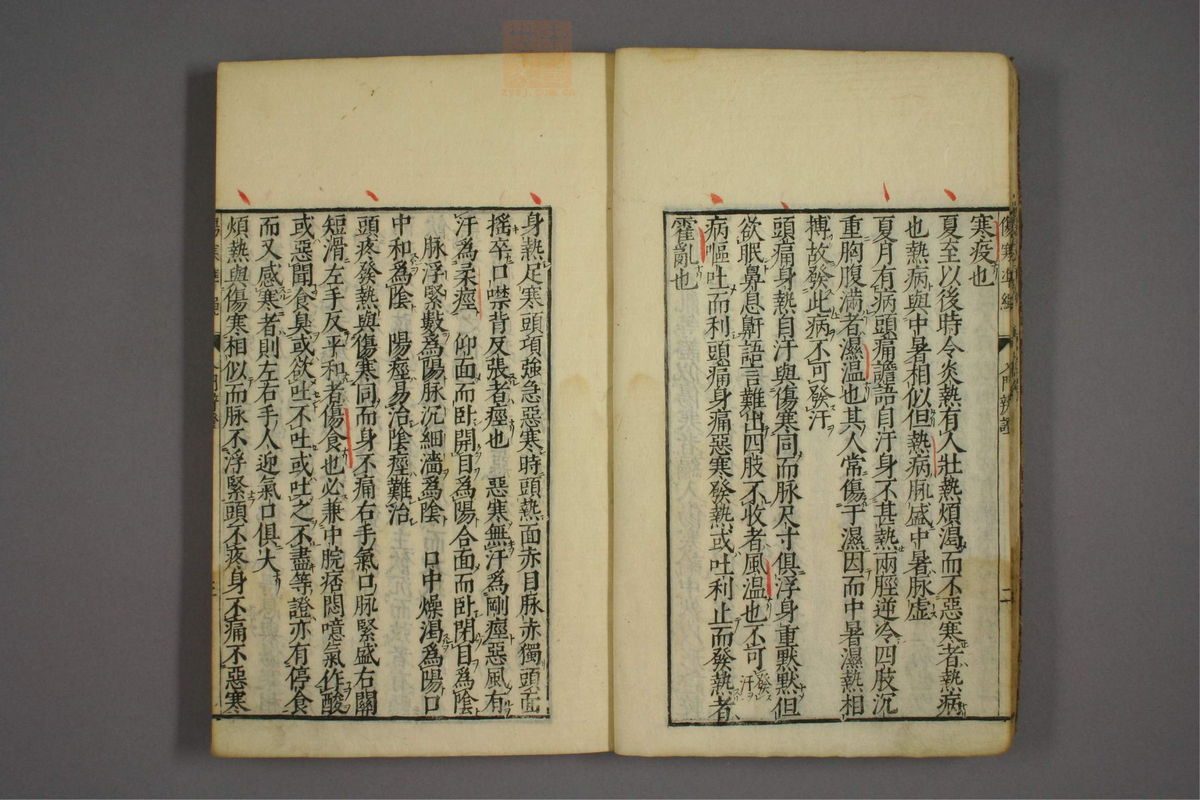 寒疫也
夏至以後時令炎熱有人壯熱煩渴而不惡寒者熱病
也熱病與中暑相似但熱病脉盛中暑脉虚
夏月有病頭痛譫語自汗身不甚熱兩脛逆冷四肢沉
重胸腹滿者濕温也其人常傷于濕因而中暑濕熱相
搏故發此病不可發汗
頭痛身熱自汗與傷寒同而脉尺寸俱浮身重黙黙但
欲眠鼻息鼾語言難出四肢不收者風温也不可發汗
病嘔吐而利頭痛身痛惡寒發熱或吐利止而發熱者
霍亂也
身熱足寒頭項強急惡寒時頭熱面赤目脉赤獨頭面
揺卒口噤背反張者痙也 惡寒無汗為剛痙惡風有
汗為柔痙 仰面而卧開目為陽合面而卧閉目為陰
脉浮緊數為陽脉沉細濇為陰 口中燥渴為陽口
中和為陰 陽痙易治陰痙難治
頭疼發熱與傷寒同而身不痛右手氣口脉緊盛右關
短滑左手反平和者傷食也必兼中脘痞悶噫氣作酸
或惡聞食臭或欲吐不吐或吐之不盡等證亦有停食
而又感寒者則左右手人迎氣口俱大
煩熱與傷寒相似而脉不浮緊頭不疼身不痛不惡寒